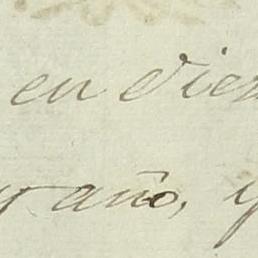 en diez
año, y